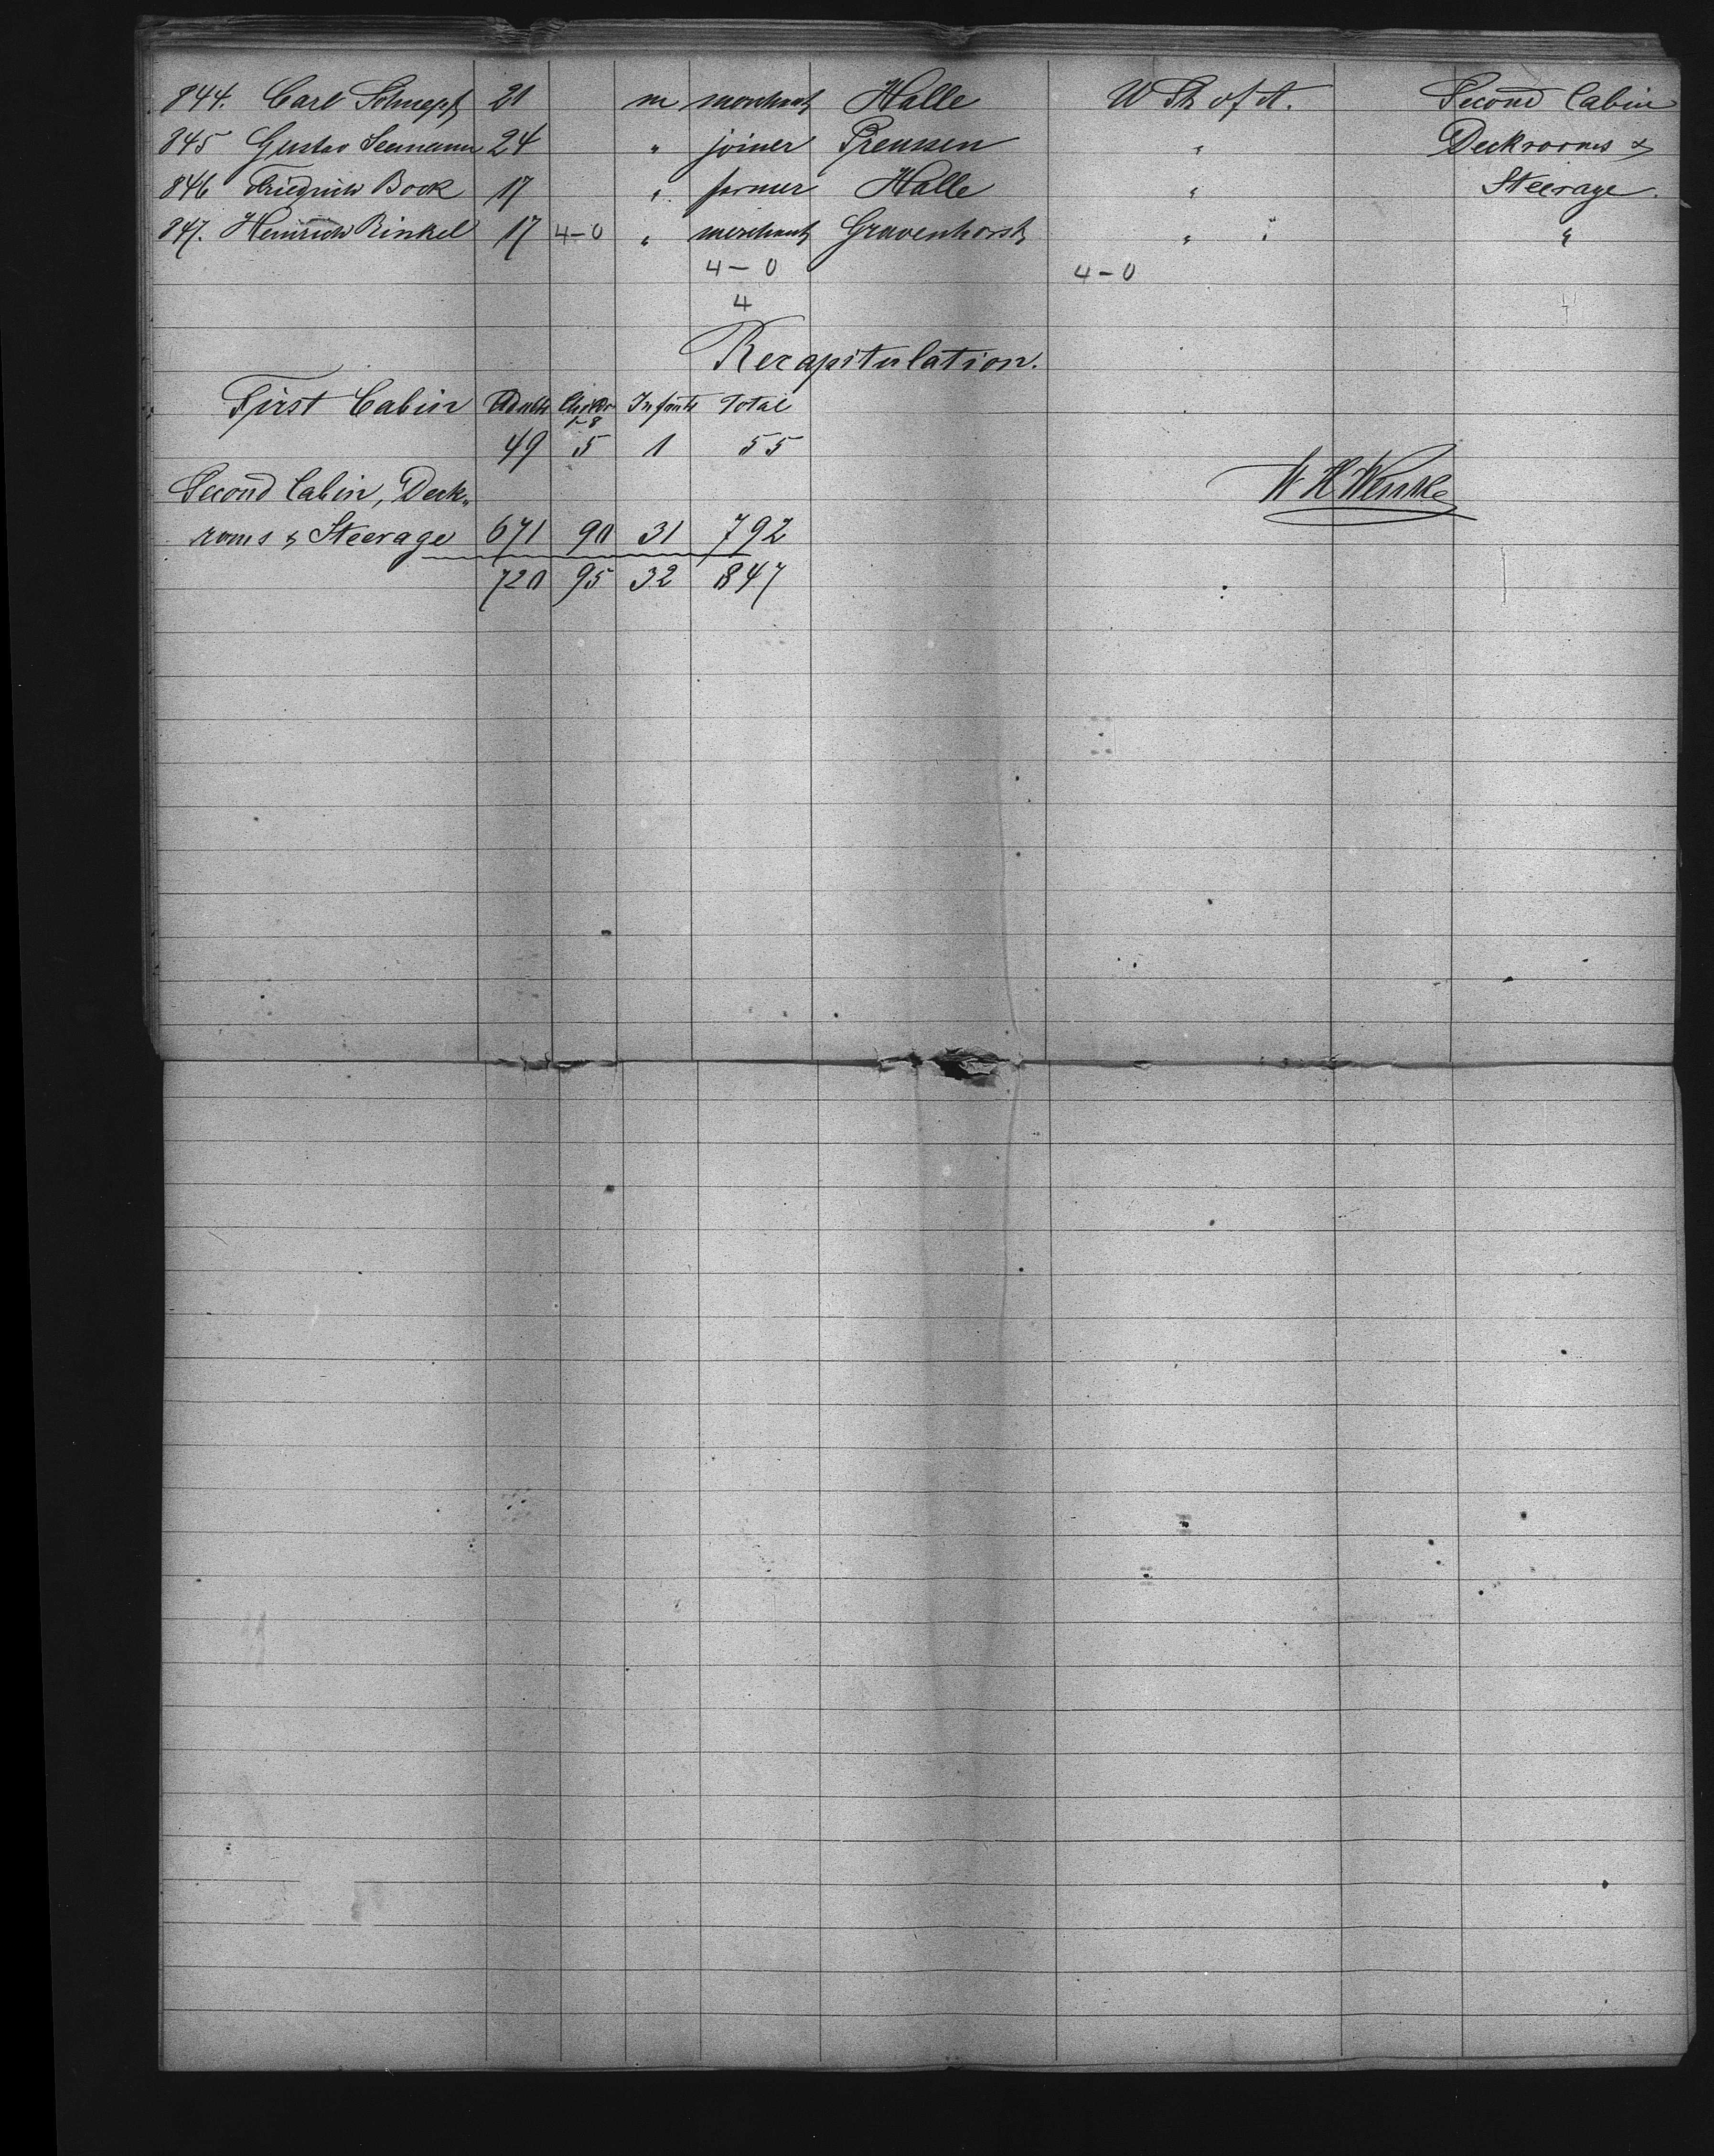 844. Carl Schnepf 21 m merchant Halle U St of A. Second Cabin
845 Gustav Seemann 24 " joiner Preussen " Deckrooms &
846 Friedrich Bock 17 " farmer Halle " Steerage.
847. Heinrich Rinkel 17 4-0 " merchant Gravenhorst " "
4-0 4-0
4
Recapitulation.
First Cabin Adults Childr 1-8 Infants Total
49 5 1 55
Second Cabin, Deck-
rooms & Steerage 671 90 31 792
720 95 32 847